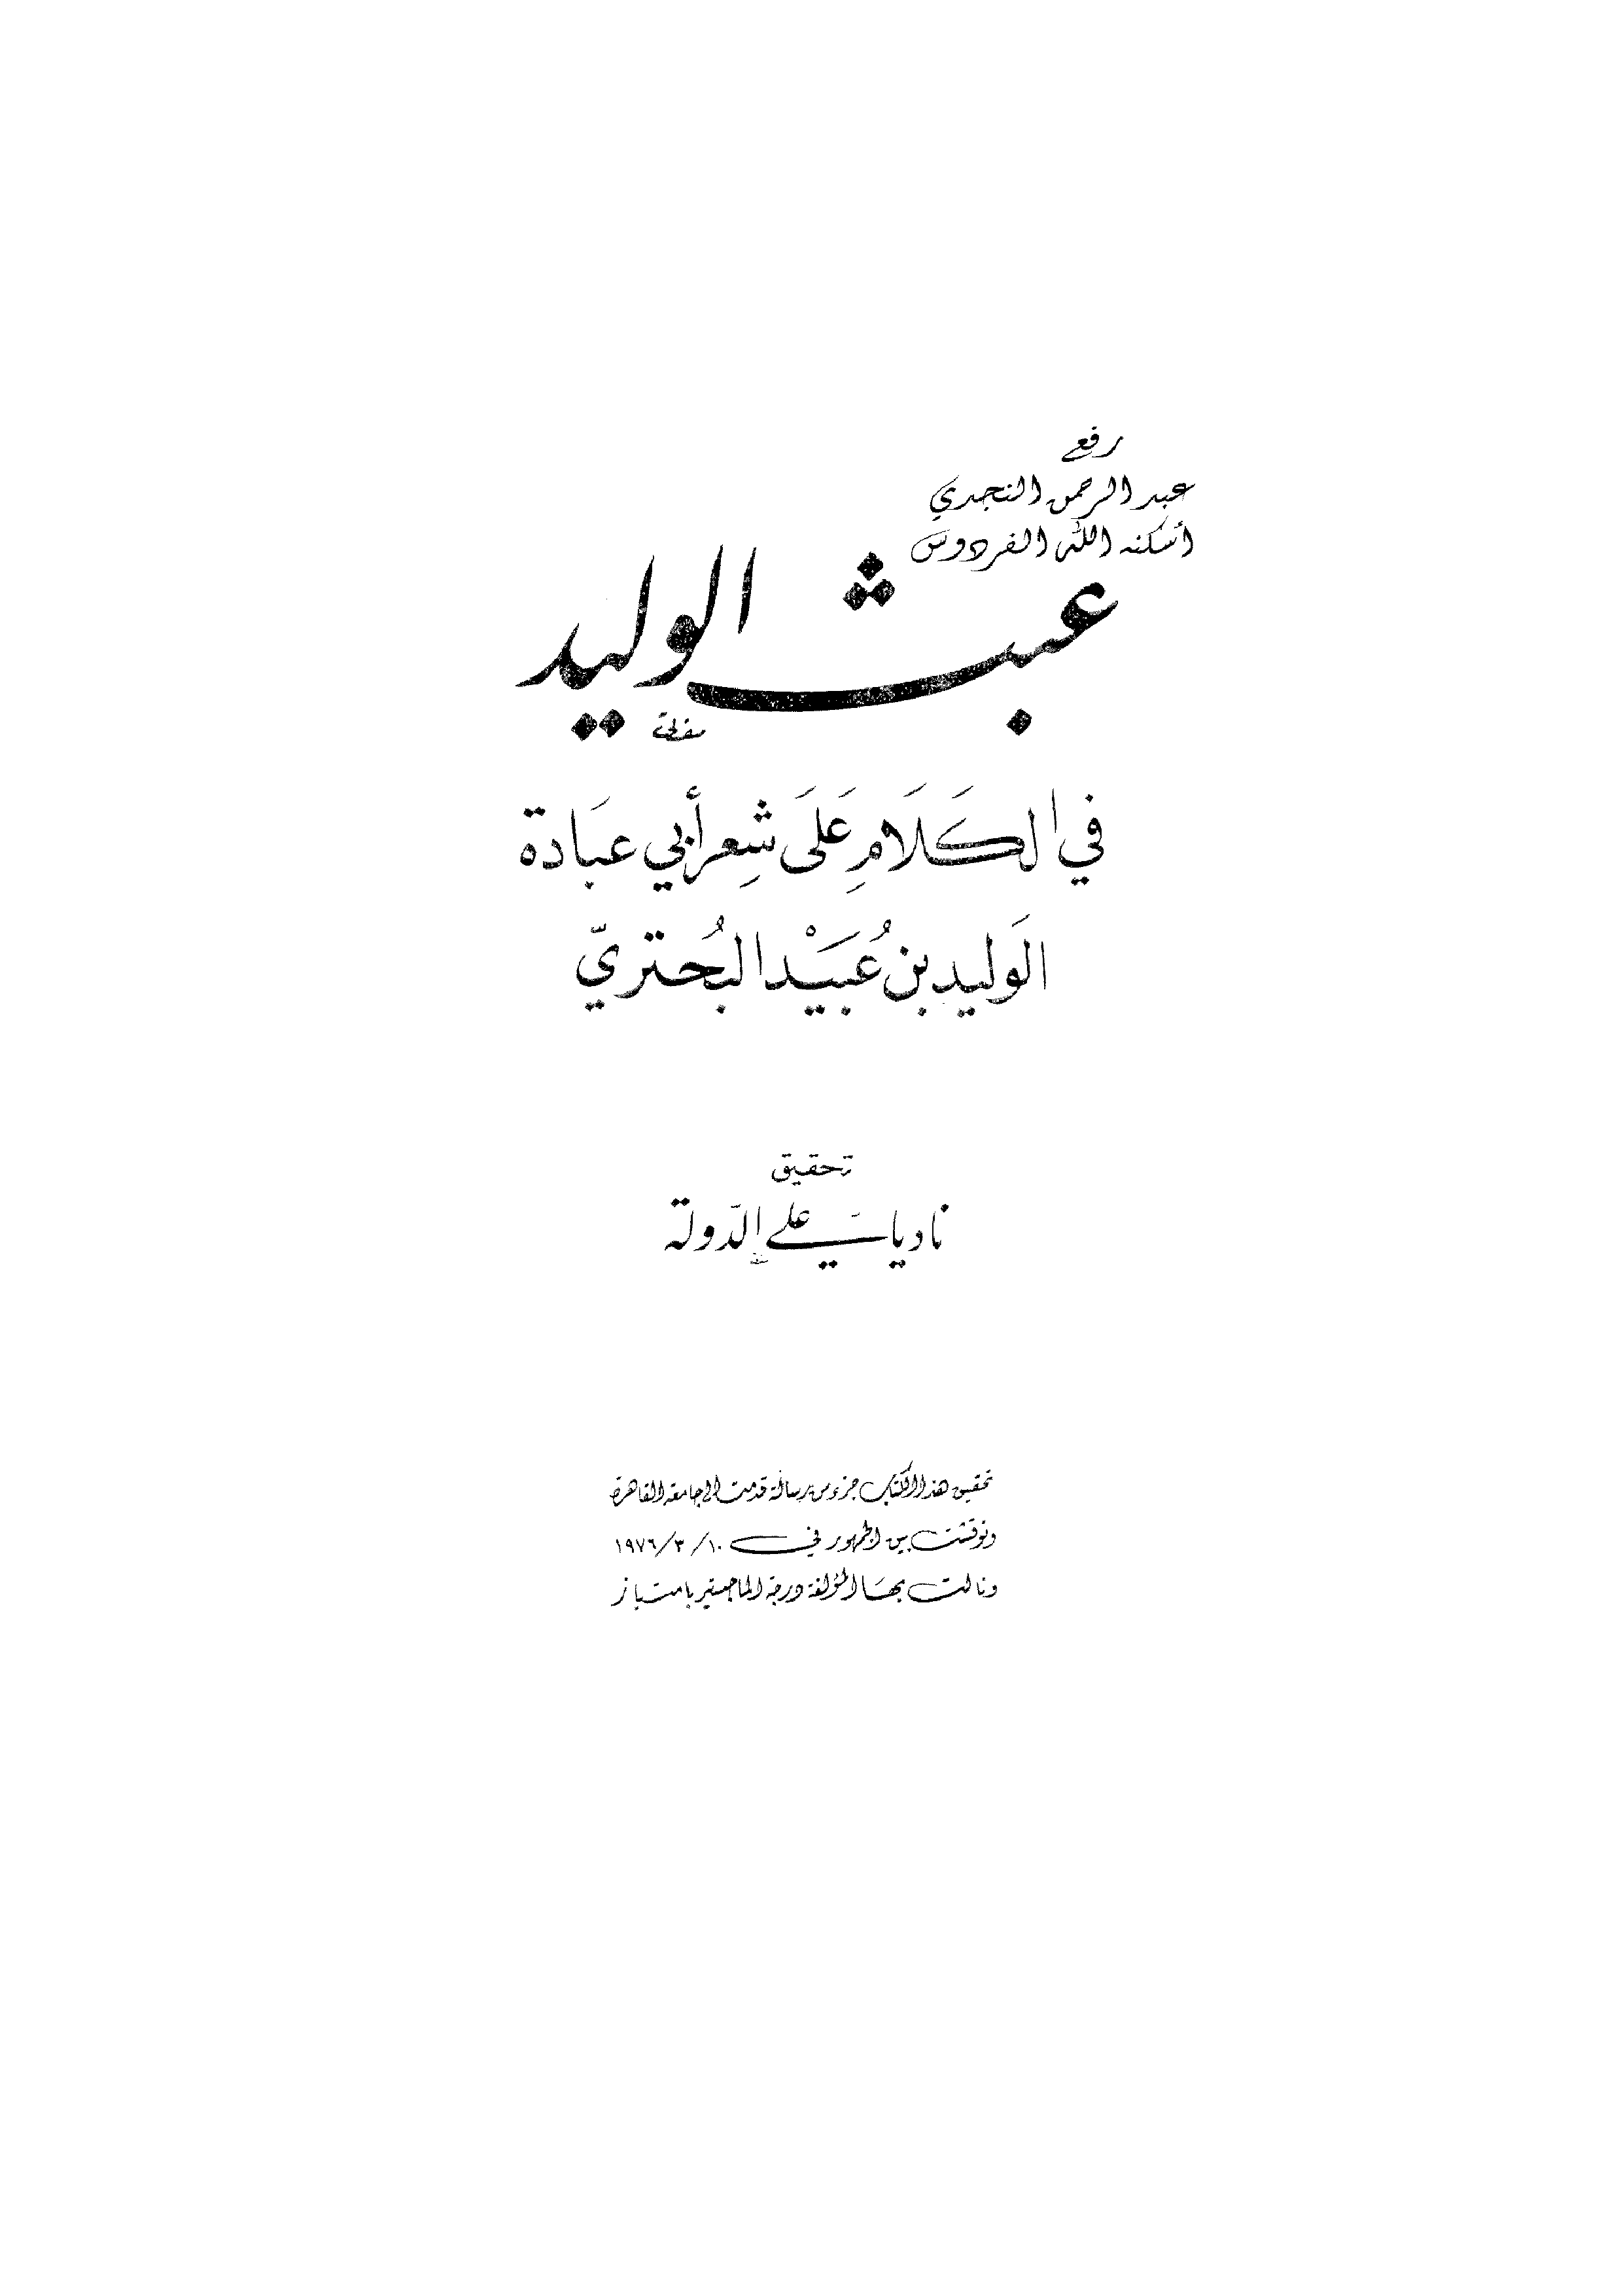 رفع
عبد الرحمن النجدي
أسكنه الله الفردوس
عبث الوليد
في الكَلَامِ عَلَى شِعر أبي عبَادة
الوَليد بن عُبَيْد البُحتريّ
تحقيق
ناديا علي الدّولة
تحقيق هذا الكتاب جزء من رسالة قدمت إلى جامعة القاهرة
ونوقشت بين الجمهور في ١٠/٣/١٩٧٦
ونالت بها المؤلفة درجة الماجستير بامتياز